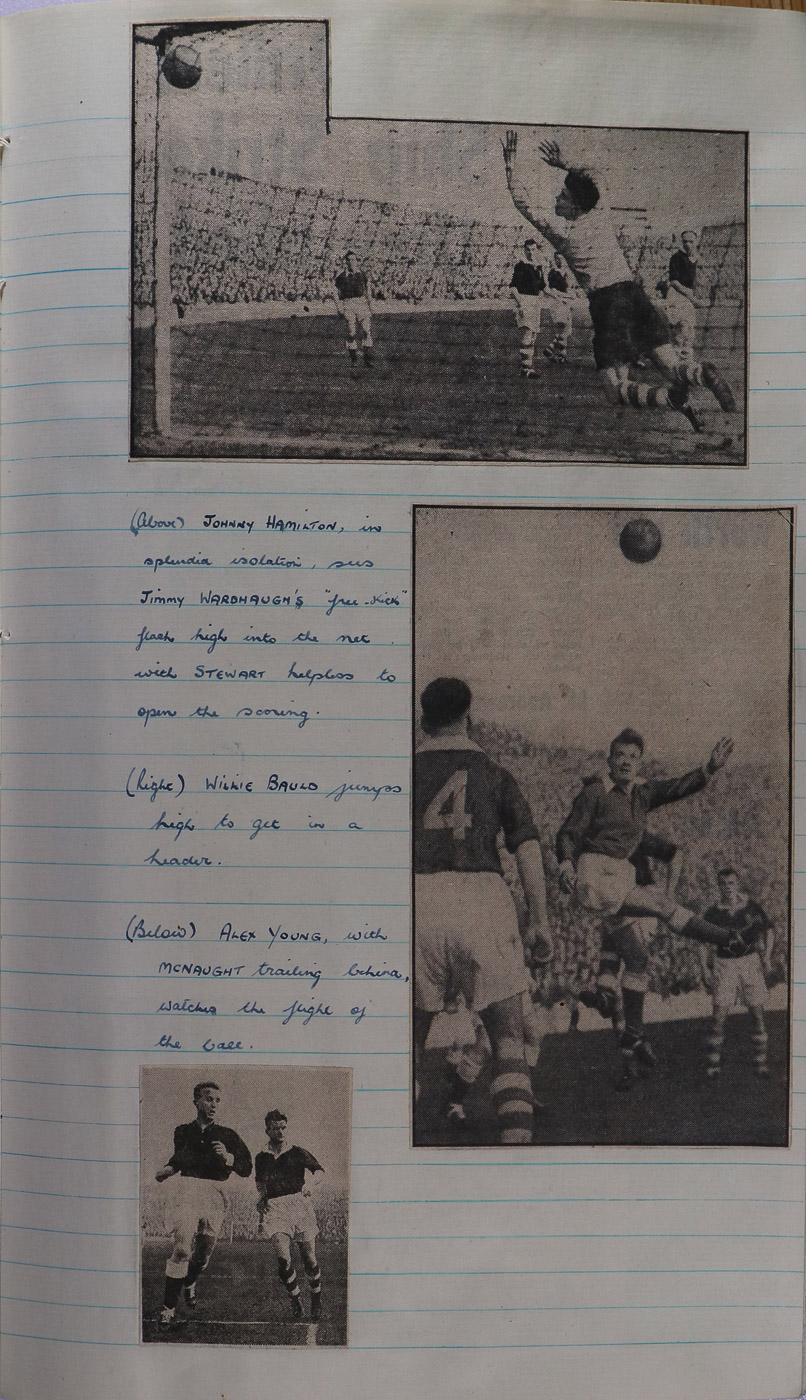 (Above) JOHNNY HAMILTON, in
splendid isolation, sees
Jimmy WARDHAUGH'S "free-kick"
flash high into the net
with STEWART helpless to
open the scoring.
(Right) WILLIE BAULD jumps
high to get in a
header.
(Below) ALEX YOUNG, with
MCNAUGHT trailing behind,
watches the flight of
the ball.
4